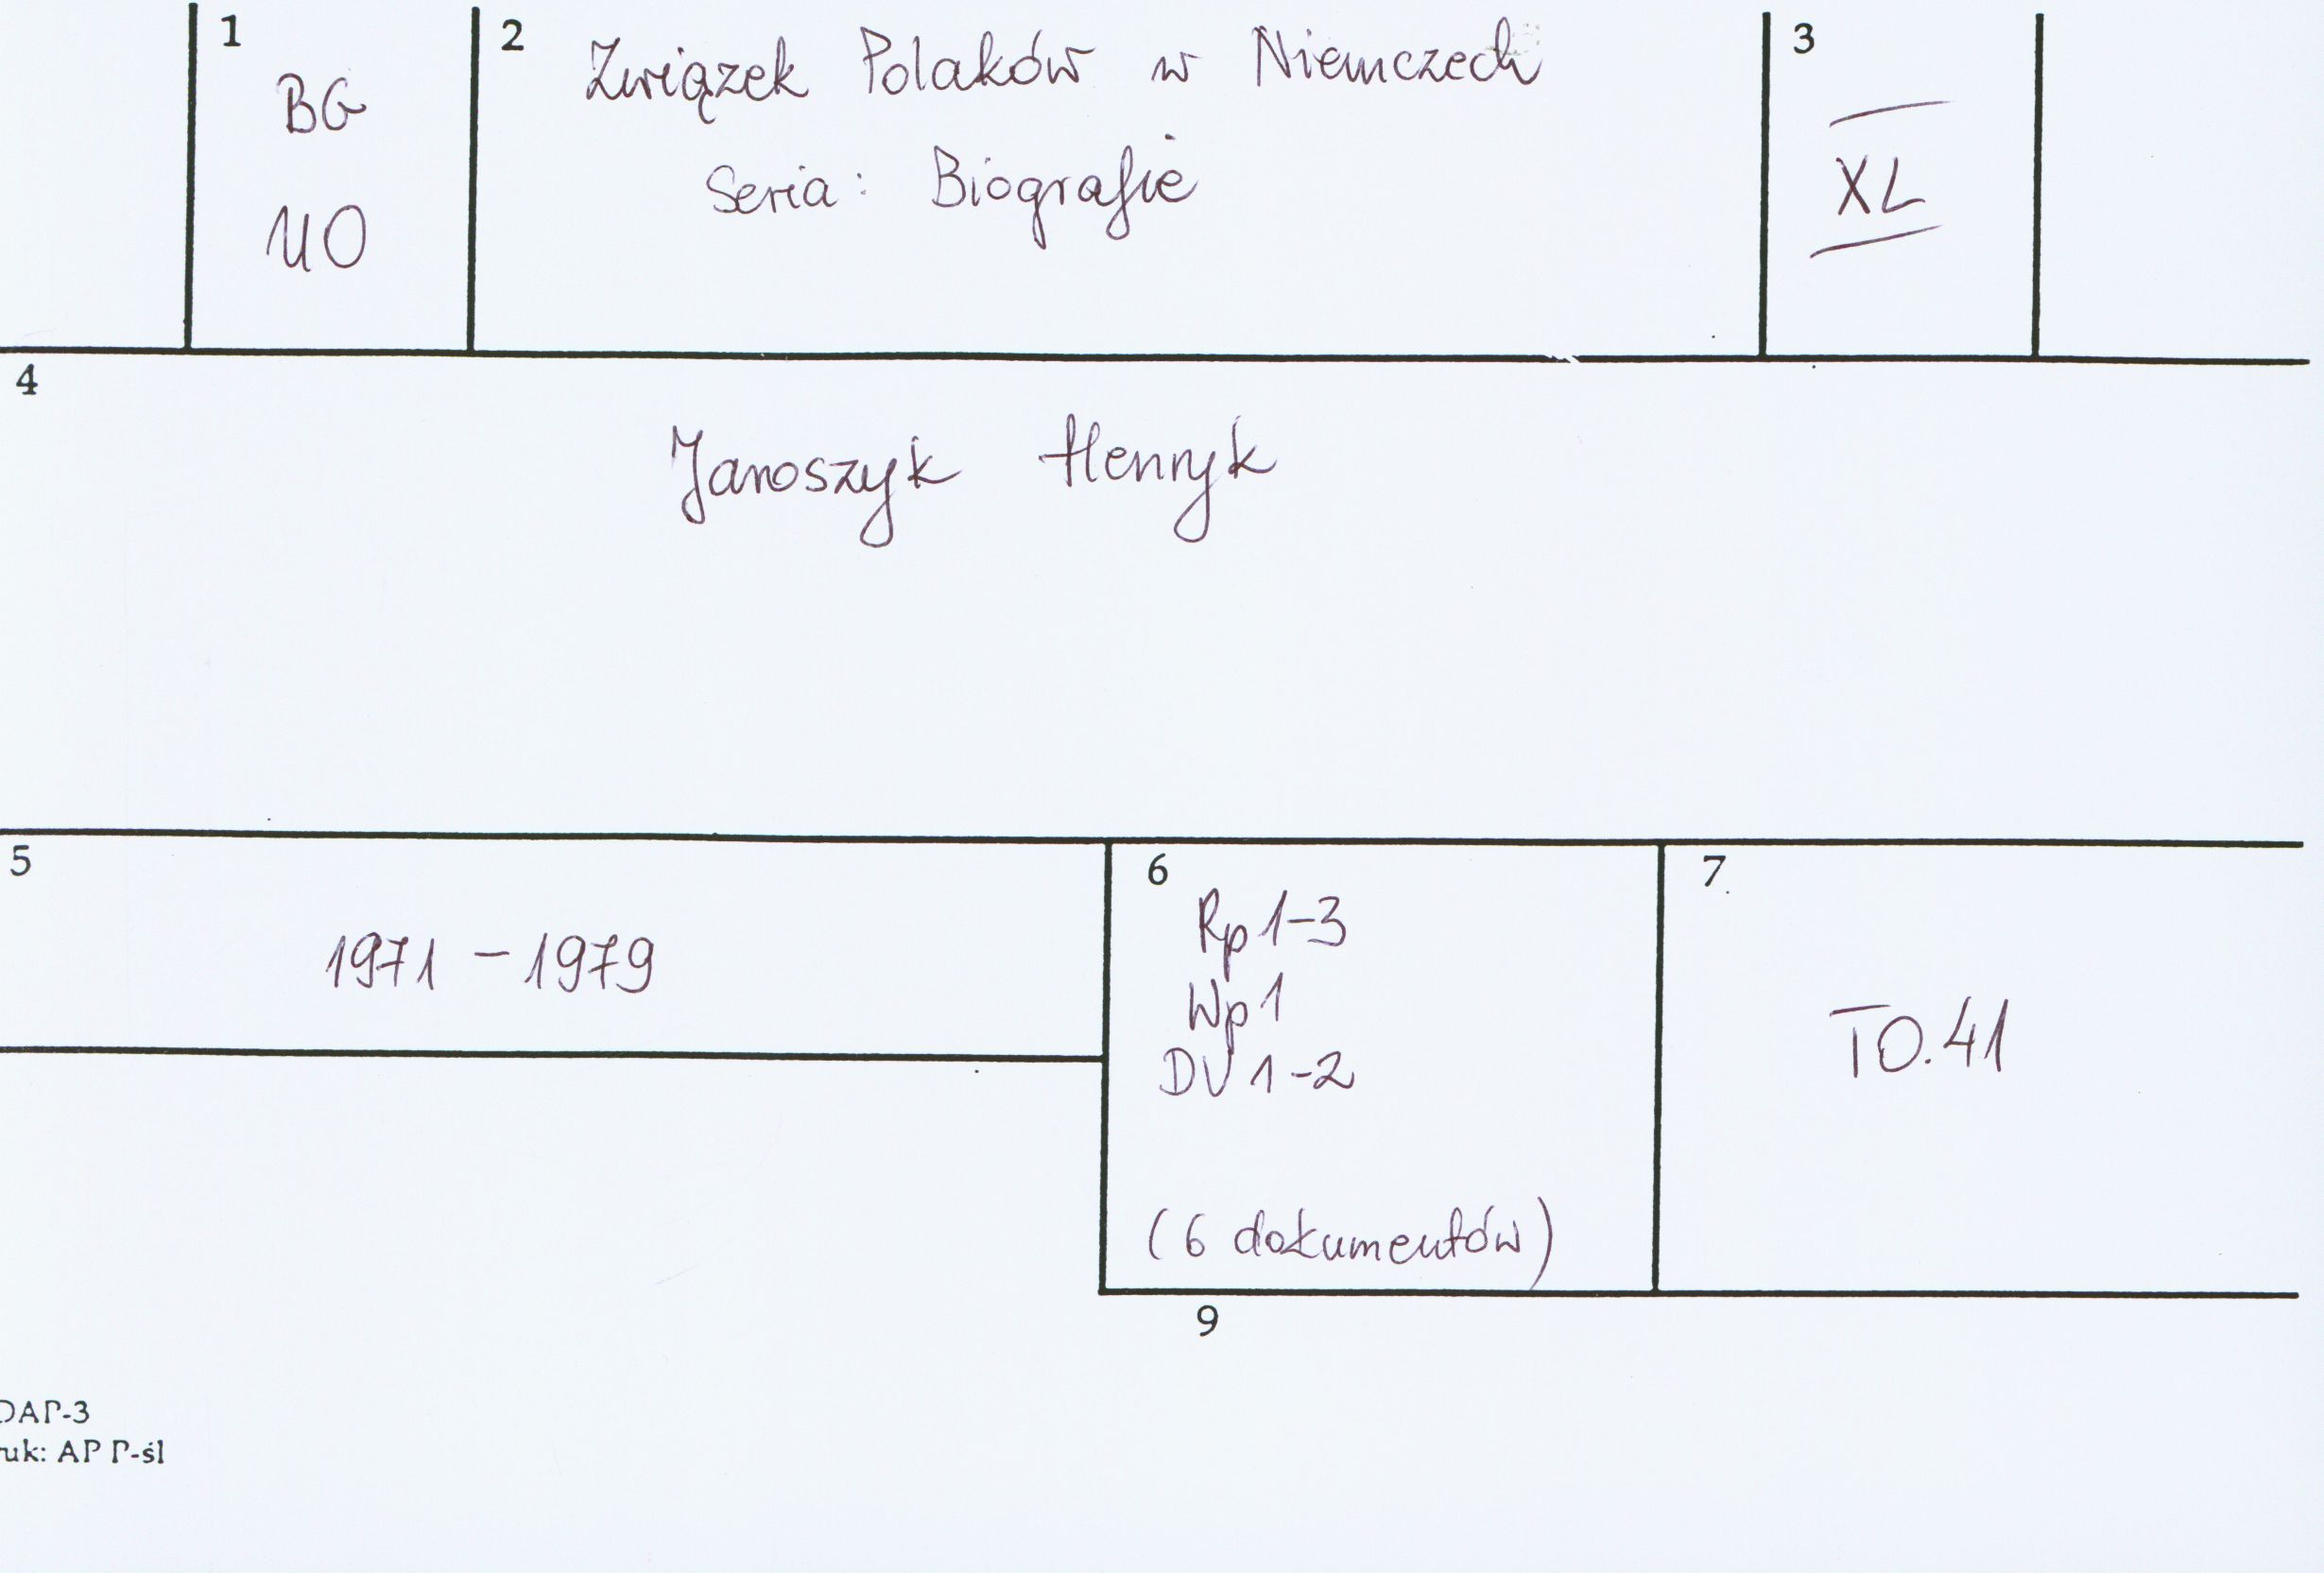 1
BG
UO
2
Związek Polaków w Niemczech
Seria: Biografie
3
XL
4
Jaroszyk Henryk
5
1971 - 1979
6
Rp 1-3
Wp 1
DV 1-2
(6 dokumentów)
7
TO.41
9
DAP-3
ruk: AP P-śl